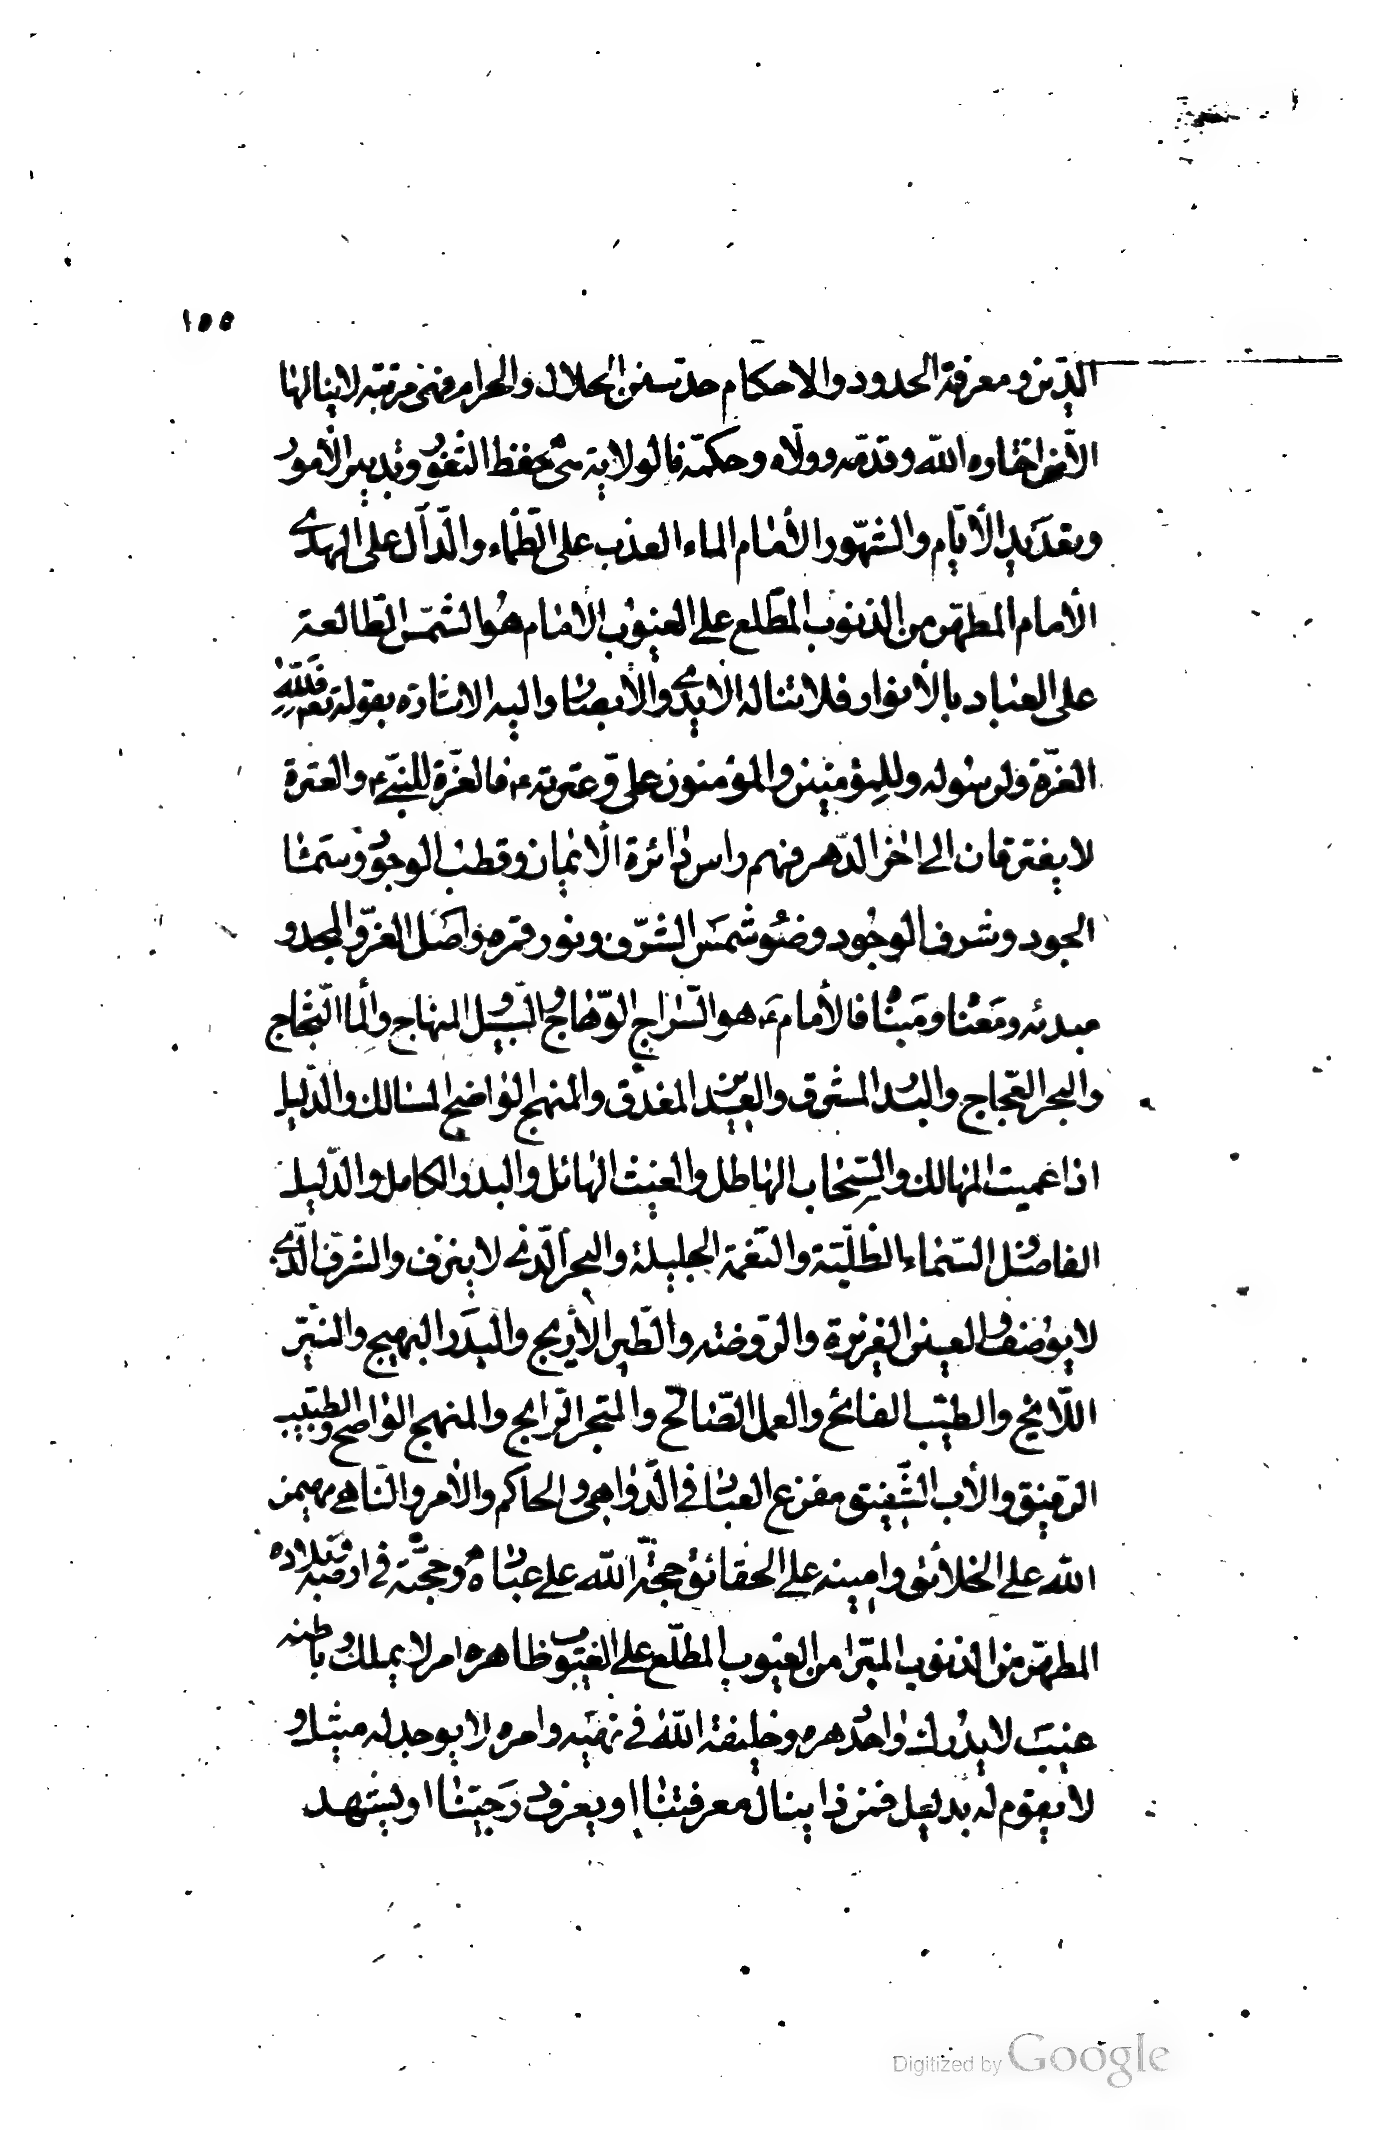 ١٥٥
الدين ومعرفة الحدود والاحكام حد سنن الحلال والحرام فهى مرتبة لا ينالها
الا من اختاره الله وقدمه وولاه وحكمه فالولاية هى حفظ الثغور وتدبير الامور
وتعديد الأيام والشهور الأمام الماء العذب على الظماء والدال على الهدى
الأمام المطهر من الذنوب المطلع على الغيوب الامام هو الشمس الطالعة
على العباد بالأنوار فلا تناله الأيدى والأبصار واليه الاشارة بقوله تعم فلله
العزة ولرسوله وللمؤمنين والمؤمنون على وعترته ع فالعزة للنبى ع والعترة
لا يفترقان الى اخر الدهر فهم راس دائرة الأيمان وقطب الوجود وسماء
الجود وشرف الوجود وضوء شمس الشرف ونور قمره واصل العز والمجد و
مبدئه ومعناه ومبناه فالأمام ع هو السراج الوهاج والسبيل المنهاج والماء الثجاج
والبحر العجاج والبدر المشرق والغدير المغدق والمنهج الواضح المسالك والدليل
اذا عميت المهالك والسحاب الهاطل والغيث الهائل والبدر الكامل والدليل
الفاضل السماء الظليلة والنعمة الجليلة والبحر الذى لا ينزف والشرف الذى
لا يوصف والعين الغزيرة والروضة والطير الأريج والبدر البهيج والنير
اللائح والطيب الفائح والعمل الصالح والمتجر الرابح والمنهج الواضح والطبيب
الرفيق والأب الشفيق مفزع العباد فى الدواهى والحاكم والأمر والناهى مهيمن
الله على الخلائق وامينه على الحقائق حجة الله على عباده ومحجته فى ارضه وبلاده
المطهر من الذنوب المبرا من العيوب المطلع على الغيوب ظاهره امر لا يملك وباطنه
غيب لا يدرك واحد دهره وخليفة الله فى نهيه وامره لا يوجد له مثيل و
لا يقوم له بديل فمن ذا ينال معرفتنا او يعرف درجتنا او يشهد
Digitized by Google